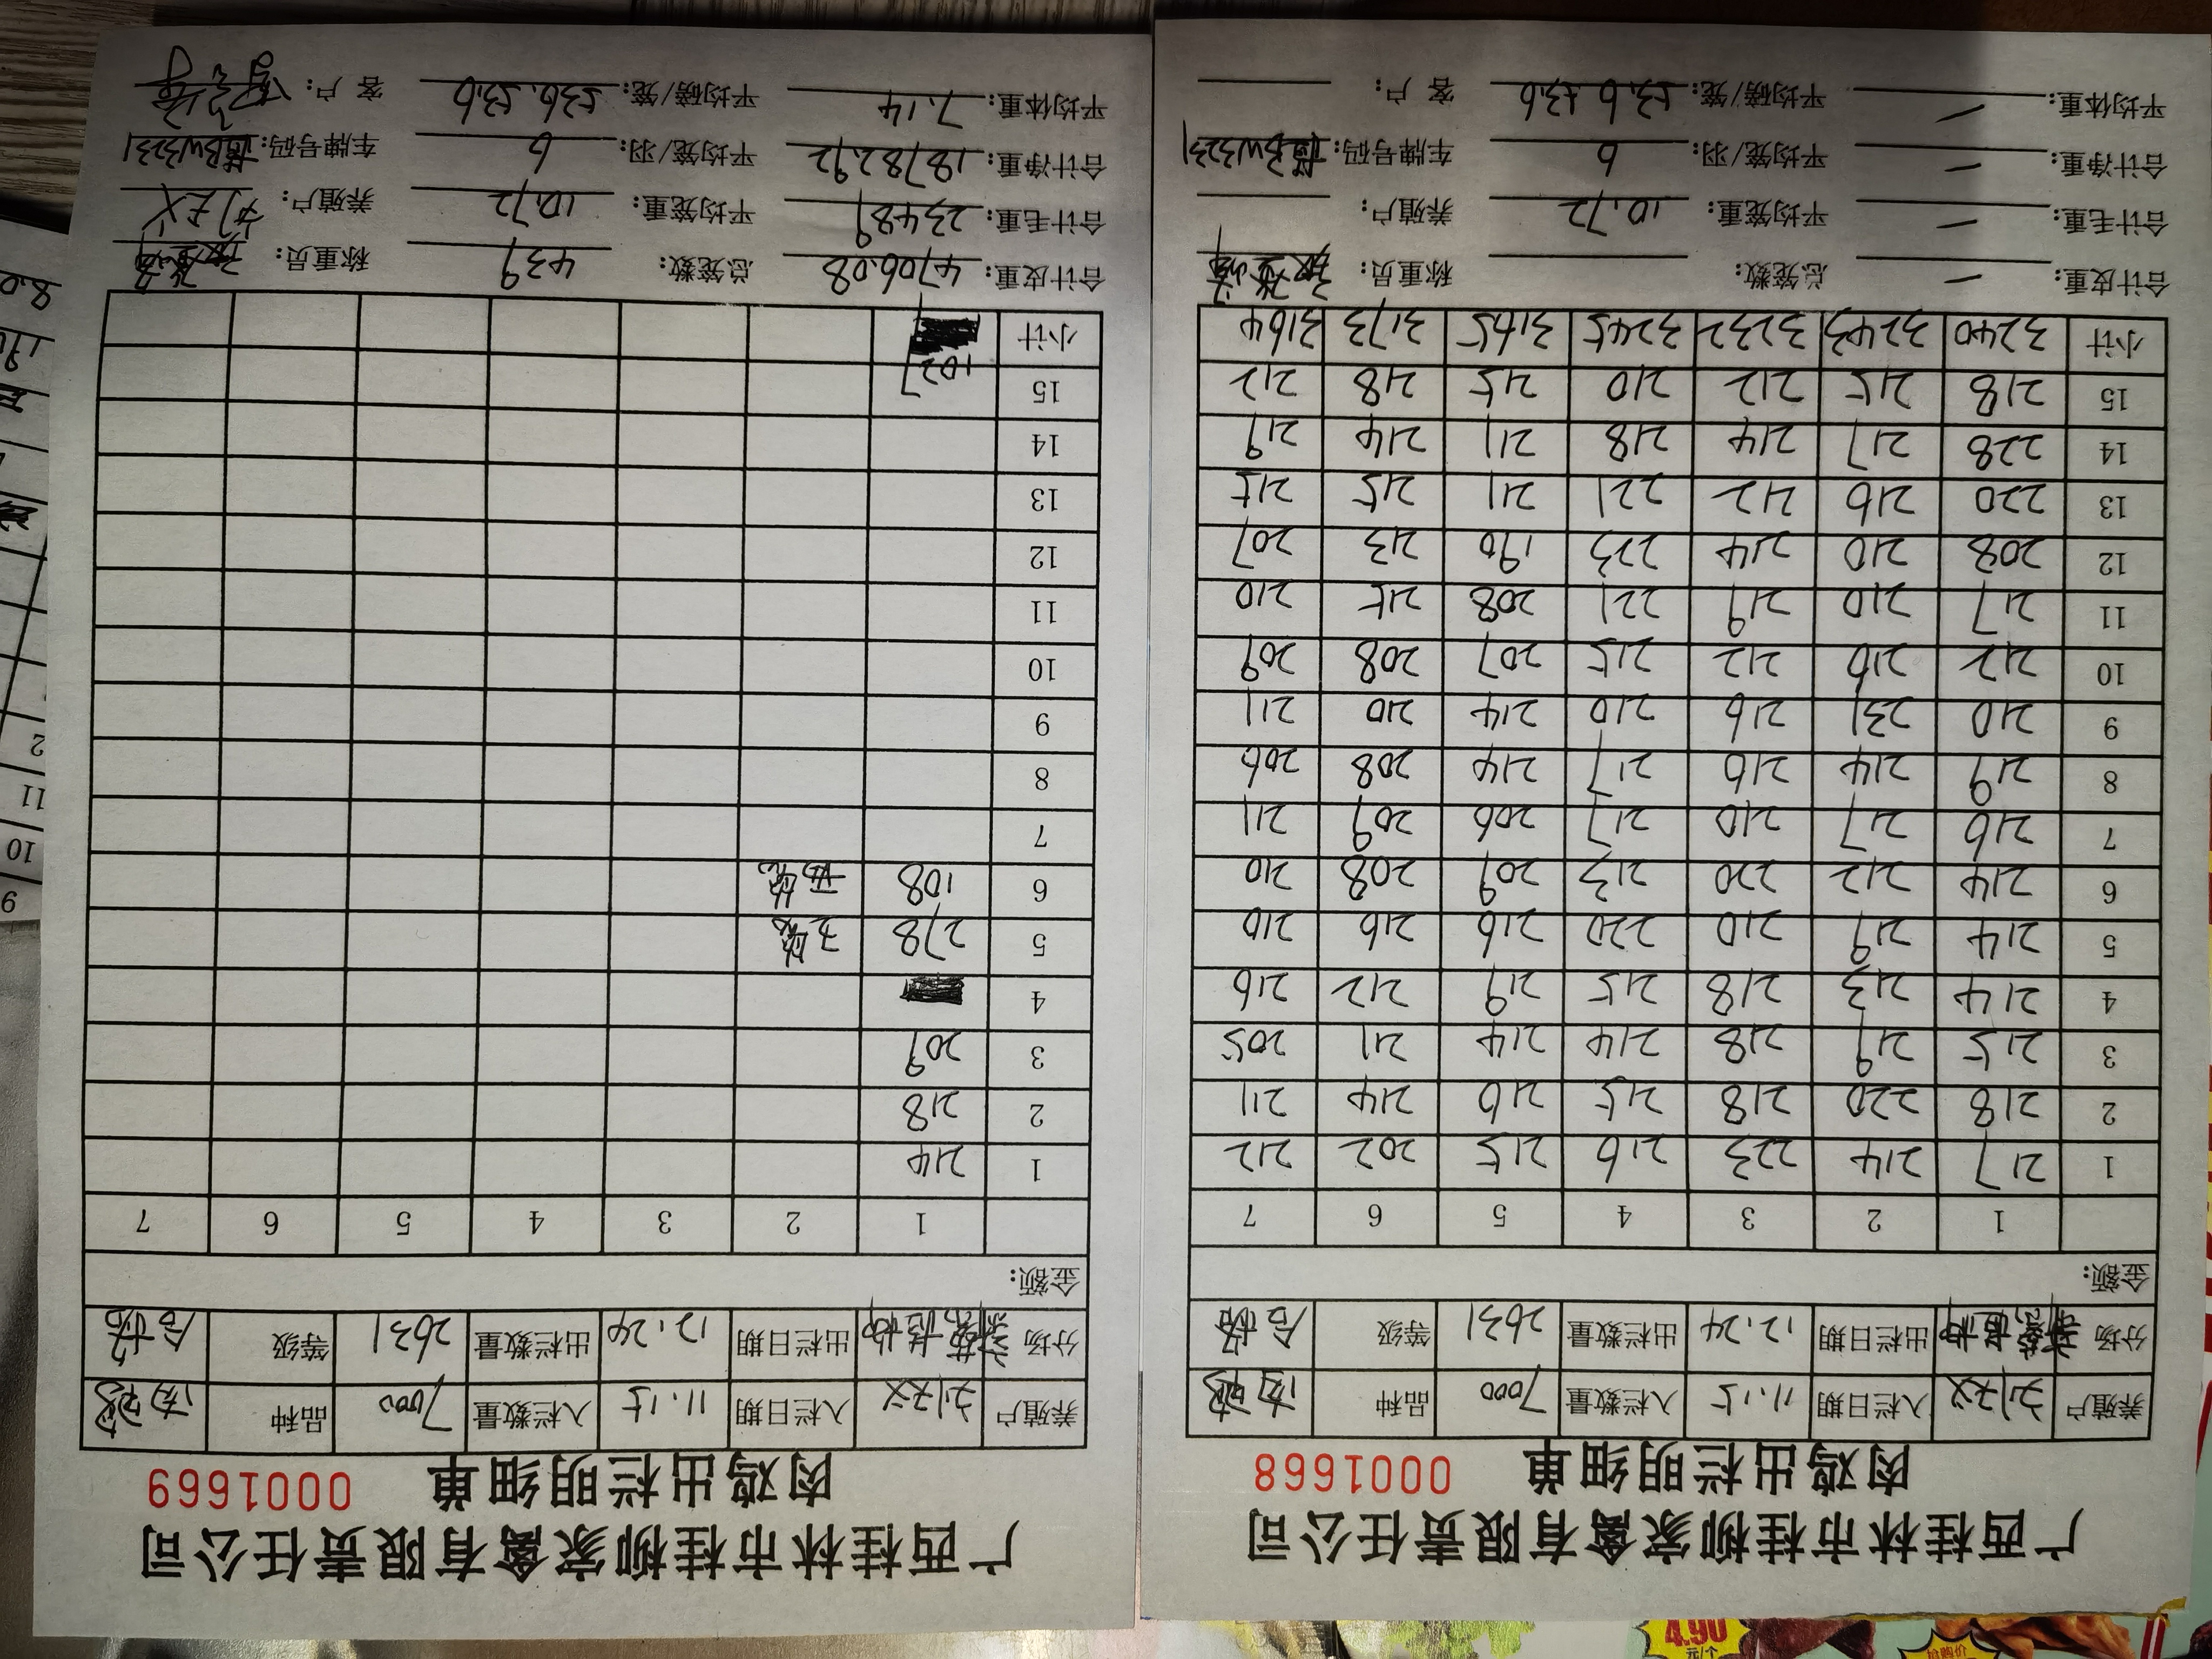 广西桂林市桂柳家禽有限责任公司
肉鸡出栏明细单 0001668
养殖户 刘天义 入栏日期 11.15 入栏数量 7000 品种 肉鸡
分场 出栏日期 12.24 出栏数量 2631 等级 合格
金额:
1 2 3 4 5 6 7
1 217 214 223 216 215 202 212
2 218 220 218 215 216 214 211
3 215 219 218 214 214 211 205
4 214 213 218 215 219 212 216
5 214 219 210 220 216 216 210
6 214 212 220 213 209 208 210
7 216 217 210 217 206 209 211
8 219 214 216 217 214 208 206
9 210 231 216 210 214 210 211
10 212 216 212 215 207 208 209
11 217 210 219 221 208 215 210
12 208 210 214 223 190 213 207
13 220 216 212 221 211 215 215
14 228 217 214 218 211 214 219
15 218 215 212 210 215 218 212
小计 3240 3243 3232 3245 3165 3173 3164
合计皮重: 总笼数: 称重员:
合计毛重: 平均笼重: 10.72 养殖户:
合计净重: 平均笼/羽: 6 车牌号码: BW3231
平均体重: 平均磅/笼: 53.6 53.6 客户:
广西桂林市桂柳家禽有限责任公司
肉鸡出栏明细单 0001669
养殖户 刘天义 入栏日期 11.15 入栏数量 7000 品种 肉鸡
分场 出栏日期 12.24 出栏数量 2631 等级 合格
金额:
1 2 3 4 5 6 7
1 214
2 218
3 209
4
5 278
6 108
7
8
9
10
11
12
13
14
15 1027
小计
合计皮重: 4706.08 总笼数: 439 称重员:
合计毛重: 23489 平均笼重: 10.72 养殖户: 刘天义
合计净重: 18782.92 平均笼/羽: 6 车牌号码: BW3231
平均体重: 7.14 平均磅/笼: 53.6 53.6 客户: